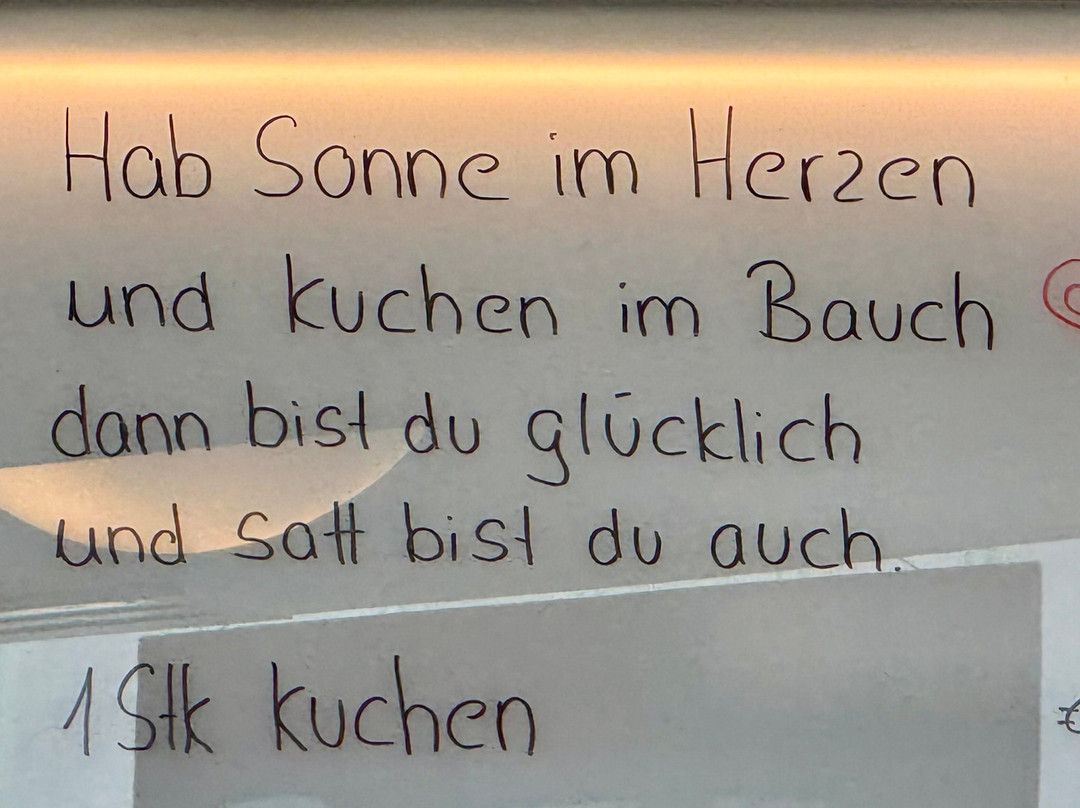 Hab Sonne im Herzen
und kuchen im Bauch
dann bist du glücklich
und satt bist du auch.
1 Stk kuchen €